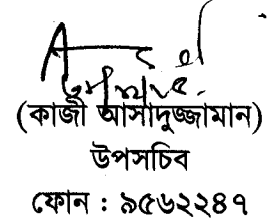 (কাজী আসাদুজ্জামান)
উপসচিব
ফোন : ৯৫৬২২৪৭